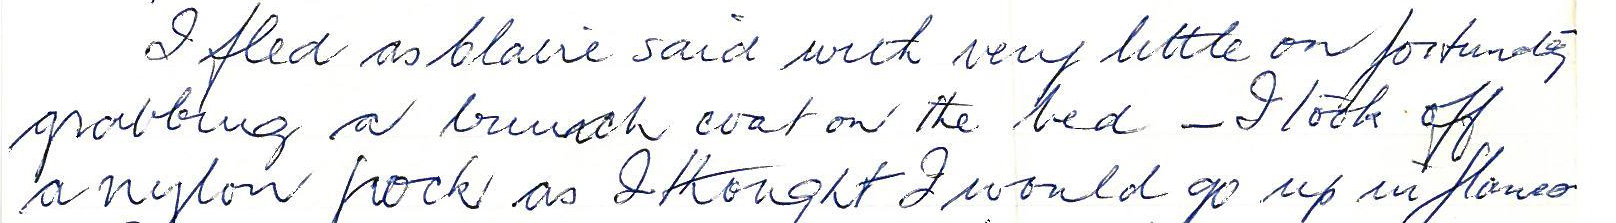 I fled as Claire said with very little on fortunately
grabbing a brunch coat on the bed – I took off
a nylon frock as I thought I would go up in flames